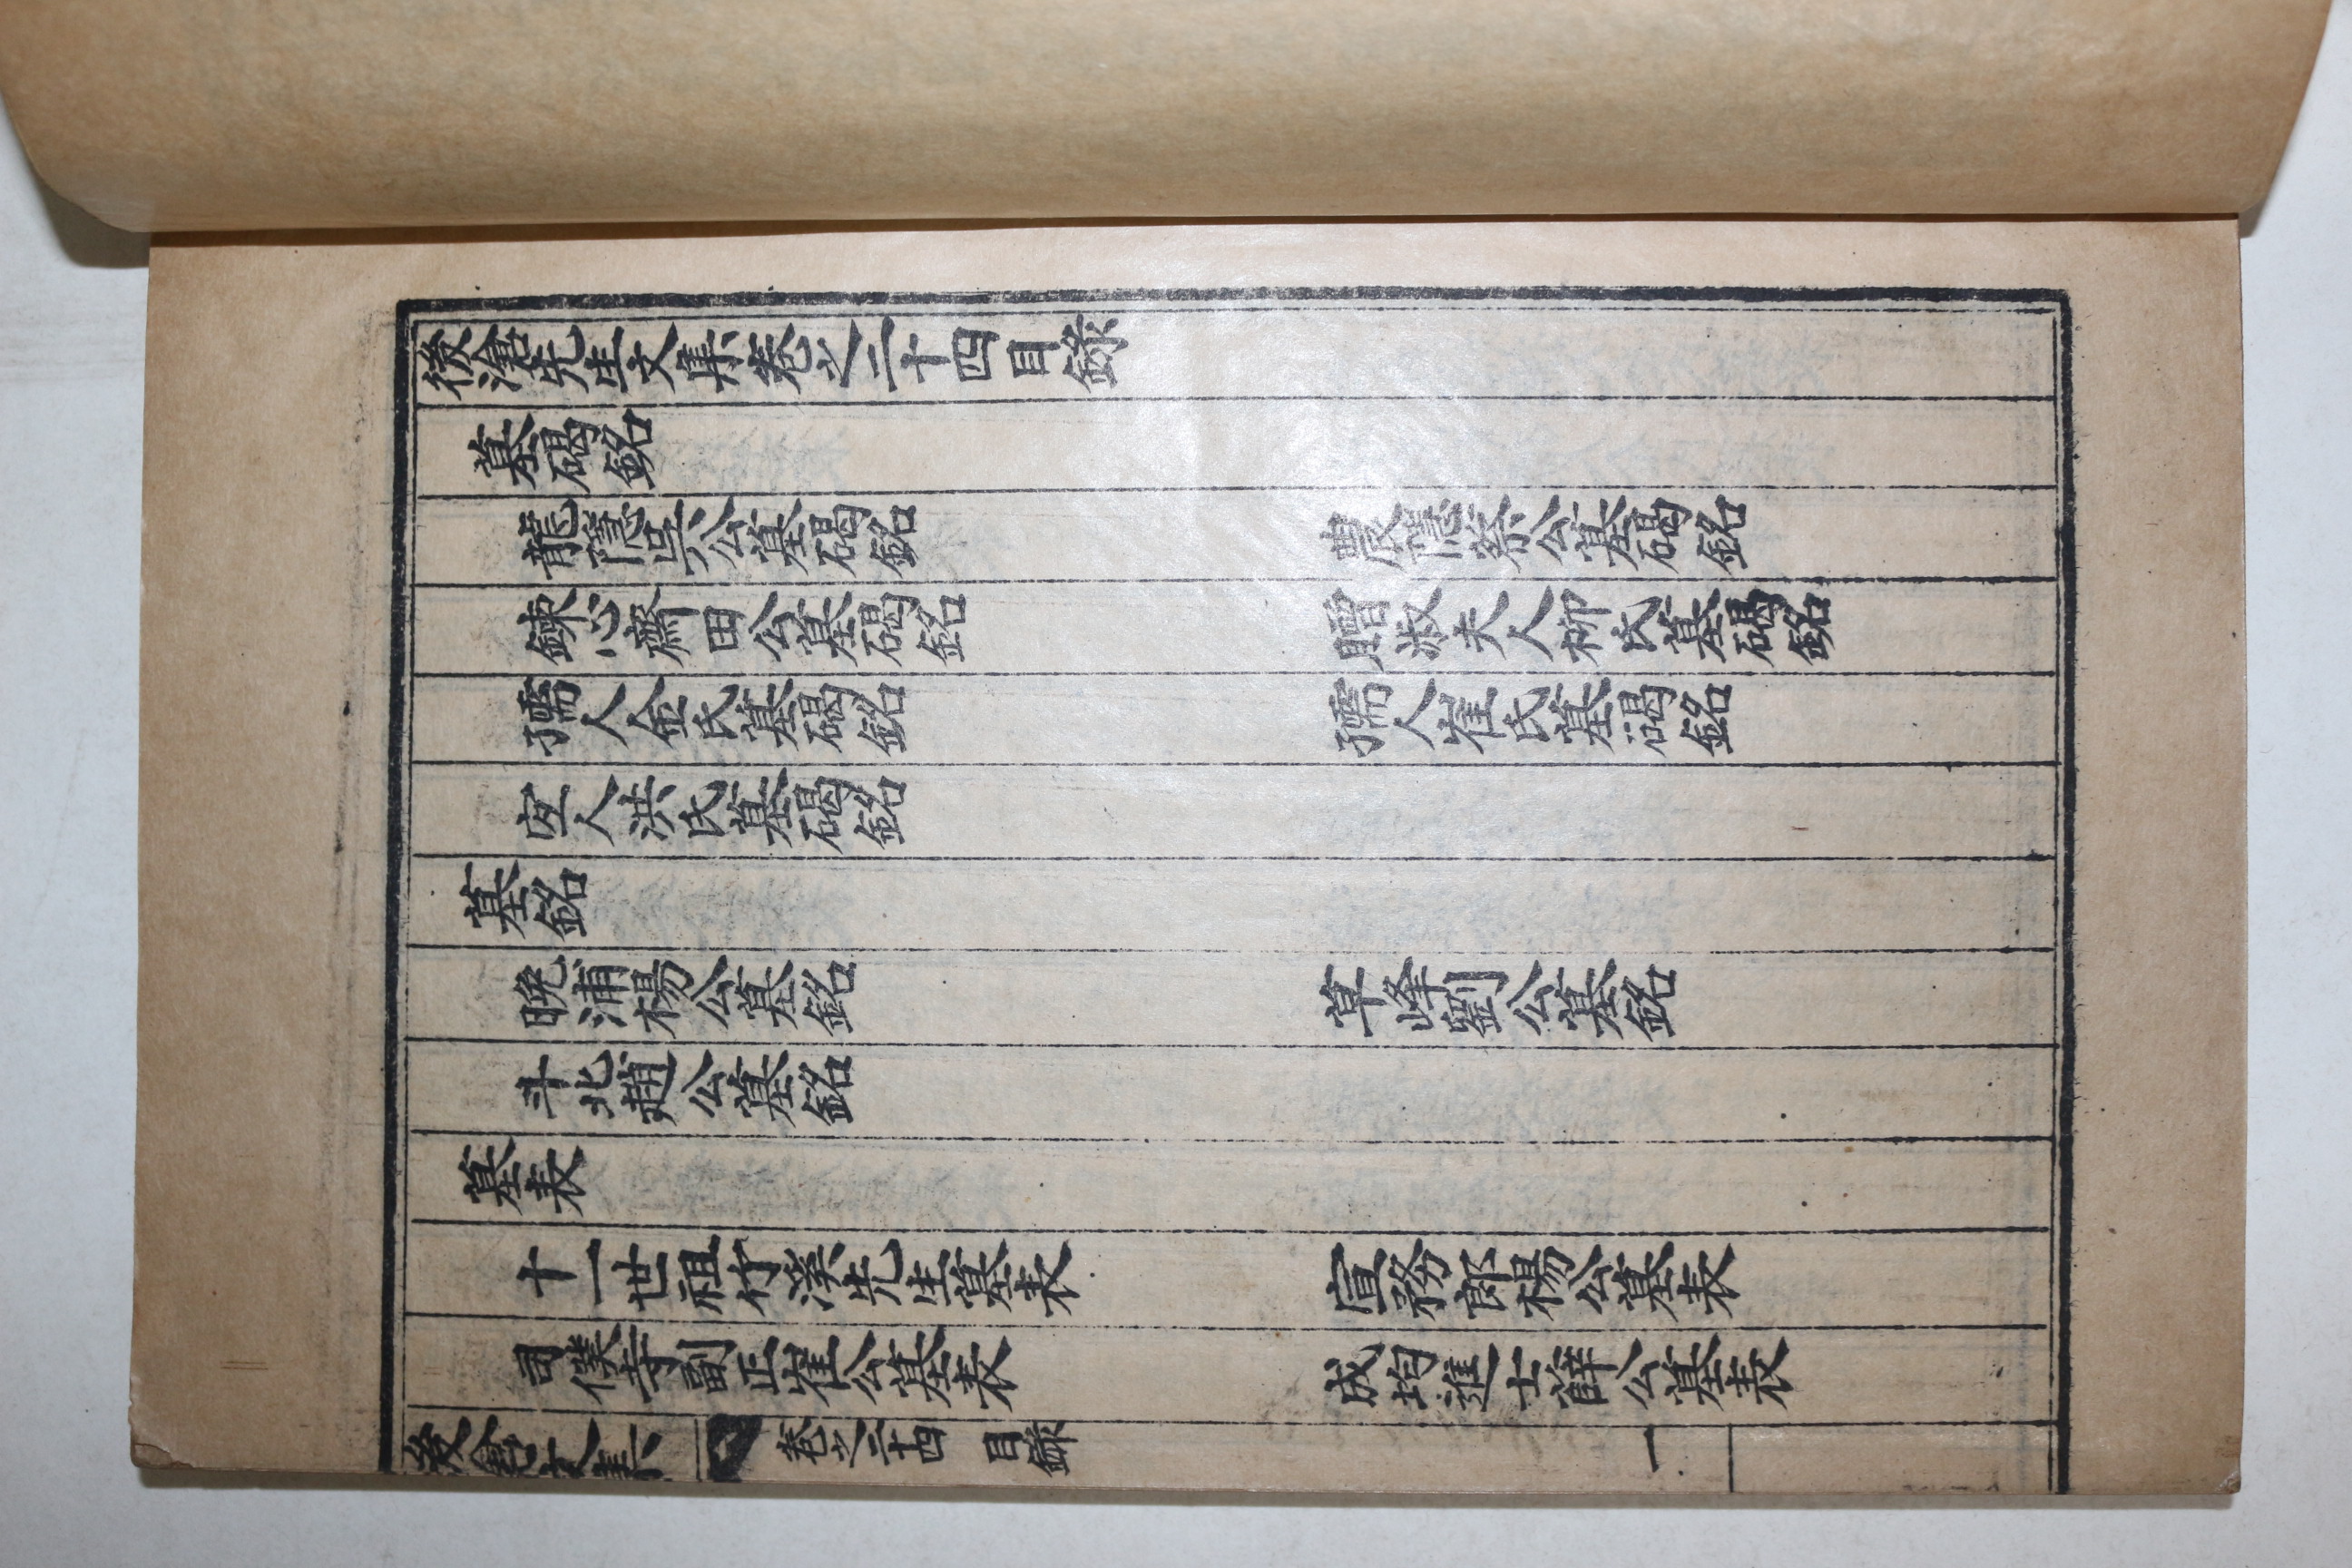 後滄先生文集卷之二十四目錄
墓碣銘
龍隱吳公墓碣銘　農隱蔡公墓碣銘
鍊心齋田公墓碣銘　贈淑夫人柳氏墓碣銘
孺人金氏墓碣銘　孺人崔氏墓碣銘
宜人洪氏墓碣銘
墓銘
晩浦楊公墓銘　草峰劉公墓銘
斗北趙公墓銘
墓表
十一世祖竹溪先生墓表　宣務郎楊公墓表
司僕寺副正崔公墓表　成均進士薛公墓表
後滄文集　卷之二十四　目錄　一